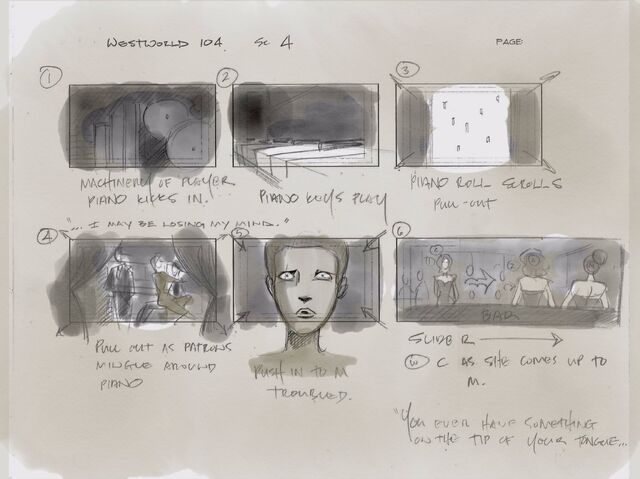 WESTWORLD 104 SC 4 PAGE
1
2
3
MACHINERY OF PLAYER
PIANO KICKS IN.
PIANO KEYS PLAY
PIANO ROLL SCROLLS
PULL-OUT
"... I MAY BE LOSING MY MIND."
4
5
6
BAR
PULL OUT AS PATRONS
MINGLE AROUND
PIANO
PUSH IN TO M
TROUBLED.
SLIDER
W C AS SHE COMES UP TO
M.
"YOU EVER HAVE SOMETHING
ON THE TIP OF YOUR TONGUE...